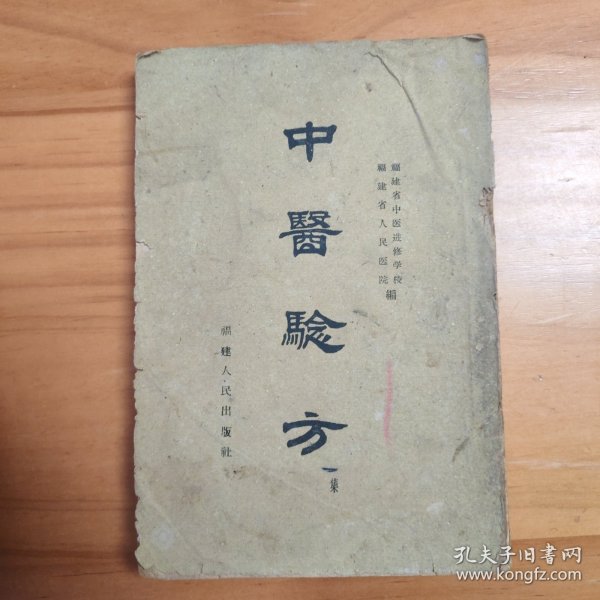 福建省中医进修学校
福建省人民医院
編
中醫驗方
一集
福建人民出版社
孔夫子旧书网
www.kongfz.com